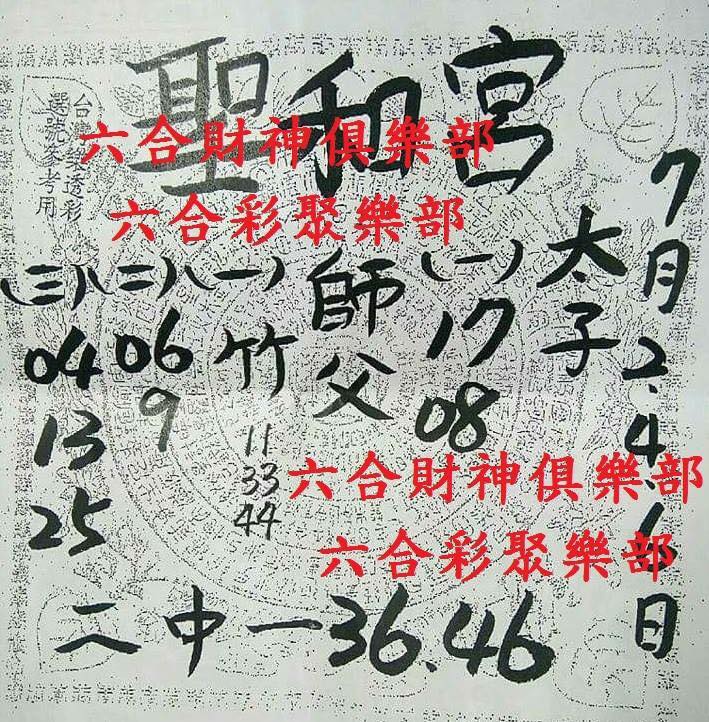 聖和宮
六合財神俱樂部
六合彩聚樂部
7月2.4.6日
太子
(一)
17
08
師父
(一)
竹
11
33
44
(二)
06
9
(三)
04
13
25
六合財神俱樂部
六合彩聚樂部
二中一36.46
透彩
選號參考用